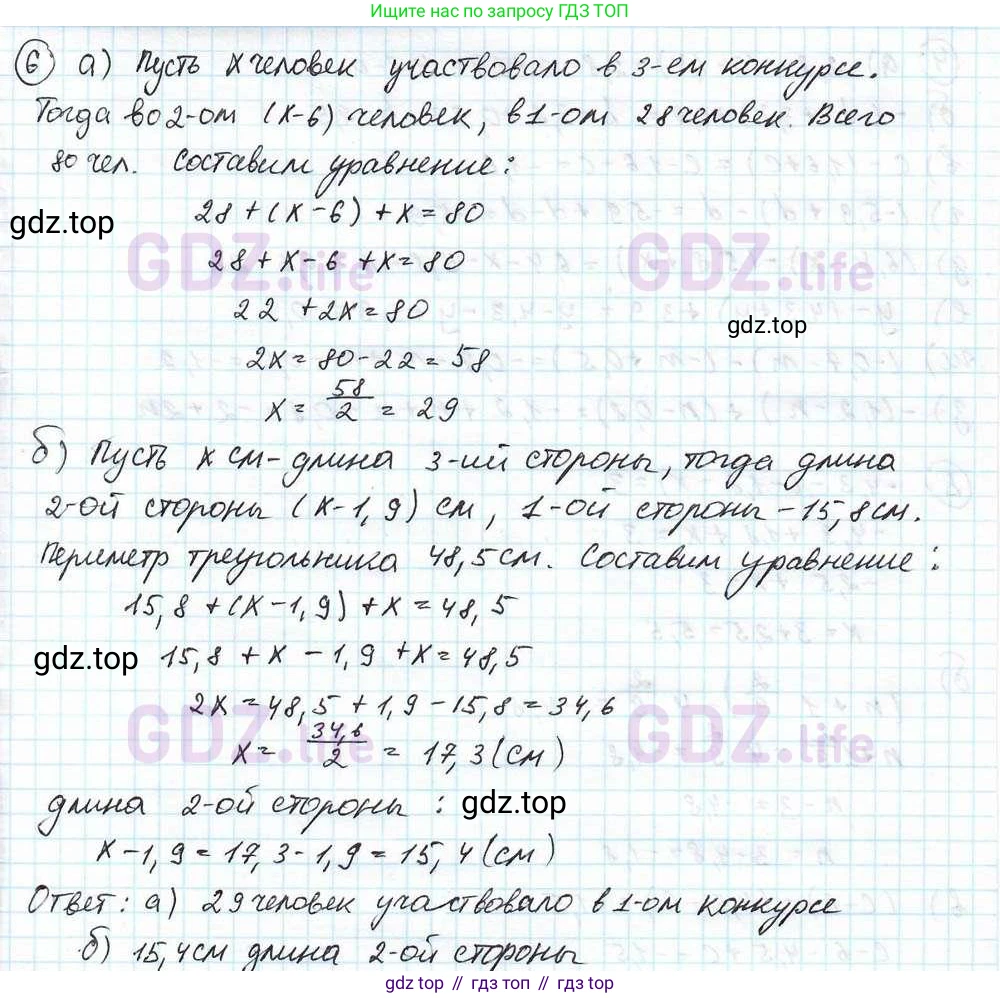 Ищите ГДЗ по запросу ГДЗ ТОП
6 а) Пусть х человек участвовало в 3-ем конкурсе.
Тогда во 2-ом (х-6) человек, в 1-ом 28 человек. Всего
80 чел. Составим уравнение:
28+(х-6)+х=80
gdz.top
GDZ.life GDZ.life
28+х-6+х=80
22+2х=80
gdz.top
2х=80-22=58
х=58/2=29
б) Пусть х см-длина 3-ий стороны, тогда длина
2-ой стороны (х-1,9) см, 1-ой стороны-15,8см.
Периметр треугольника 48,5см. Составим уравнение:
15,8+(х-1,9)+х=48,5
gdz.top 15,8+х-1,9+х=48,5
2х=48,5+1,9-15,8=34,6
GDZ.life GDZ.life
х=34,6/2=17,3(см)
длина 2-ой стороны: gdz.top
х-1,9=17,3-1,9=15,4(см)
Ответ: а) 29 человек участвовало в 1-ом конкурсе
б) 15,4см длина 2-ой стороны
gdz.top // гдз топ // гдз.топ